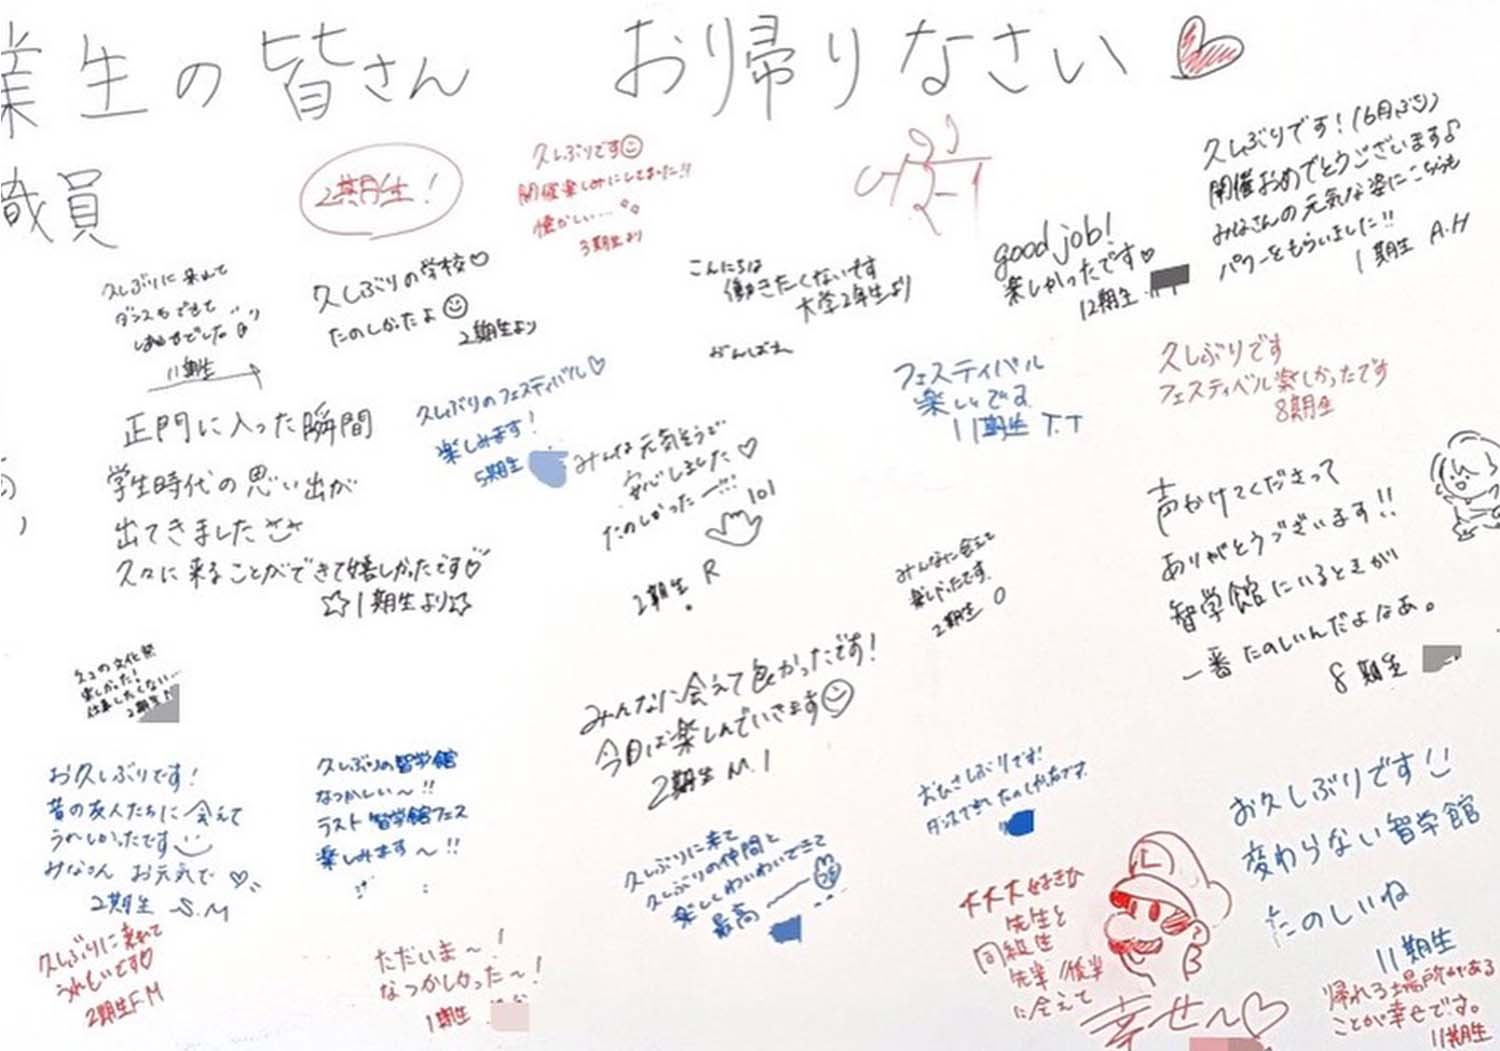 業生の皆さん おかえりなさい
職員
2期生!
久しぶりです
開催楽しみにしてました!!
懐かしい…
3期生より
久しぶりです!(6月ぶり)
開催おめでとうございます♪
みなさんの元気な姿にこちらも
パワーをもらいました!!
1期生 A.H
good job!
楽しかったです♡
12期生
こんにちは
働きたくないです
大学2年生より
がんばえ
久しぶりに来れて
ダンスもできて
しあわせでした
11期生
久しぶりの学校♡
たのしかたよ
2期生より
正門に入った瞬間
学生時代の思い出が
出てきました
久々に来ることができて嬉しかったです♡
☆1期生より☆
久しぶりのフェスティバル♡
楽しみます!
5期生
みんな元気そうで
安心しました♡
たのしかったー!!!
101
2期生 R
フェスティバル
楽しんでる
11期生 T.T
久しぶりです
フェスティバル楽しかったです
8期生
みんなに会えて
楽しかったです。
2期生 O
声かけてくださって
ありがとうございます!!
智学館にいるときが
一番たのしいんだよなあ。
8期生
文化祭
楽しかった!
仕事したくない…
2期生
みんなに会えて良かったです!
今日は楽しんでいきます
2期生 M.I
お久しぶりです!
昔の友人たちに会えて
うれしかったです
みなさん お元気で♡
2期生 S.M
久しぶりの智学館
なつかしい〜!!
ラスト智学館フェス
楽しみます〜!!
久しぶりに来て
久しぶりの仲間と
楽しくわいわいできて
最高
おひさしぶりです!
ダンスできてたのしかったです。
お久しぶりです
変わらない智学館
たのしいね
11期生
久しぶりに来れて
うれしいです♡
2期生 F.M
ただいま〜!
なつかしかった〜!
1期生
大大大好きな
先生と
同級生
先輩/後輩
に会えて
幸せ〜♡
L
帰れる場所がある
ことが幸せです。
11期生